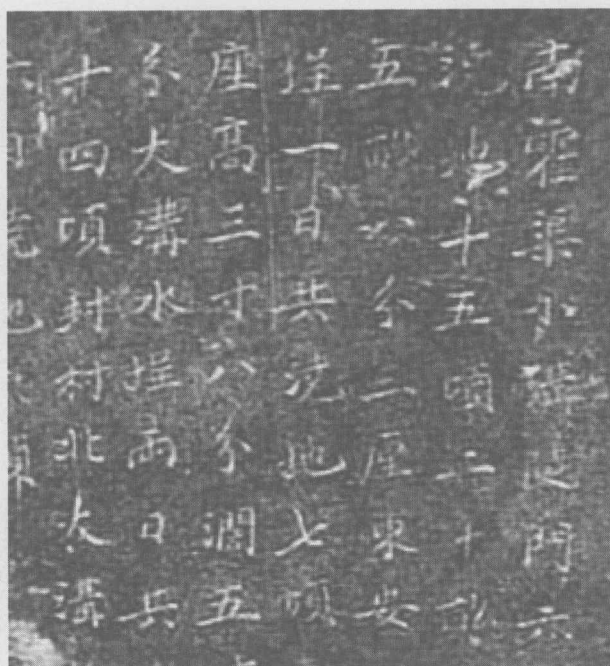 南霍渠小陡門六
澆地十五頃二十畝
五畝八分二厘東安
埕一日共澆地七頃
座高三寸八分濶五
分大溝水埕兩日共
十四頃封村北大溝
日澆地頃